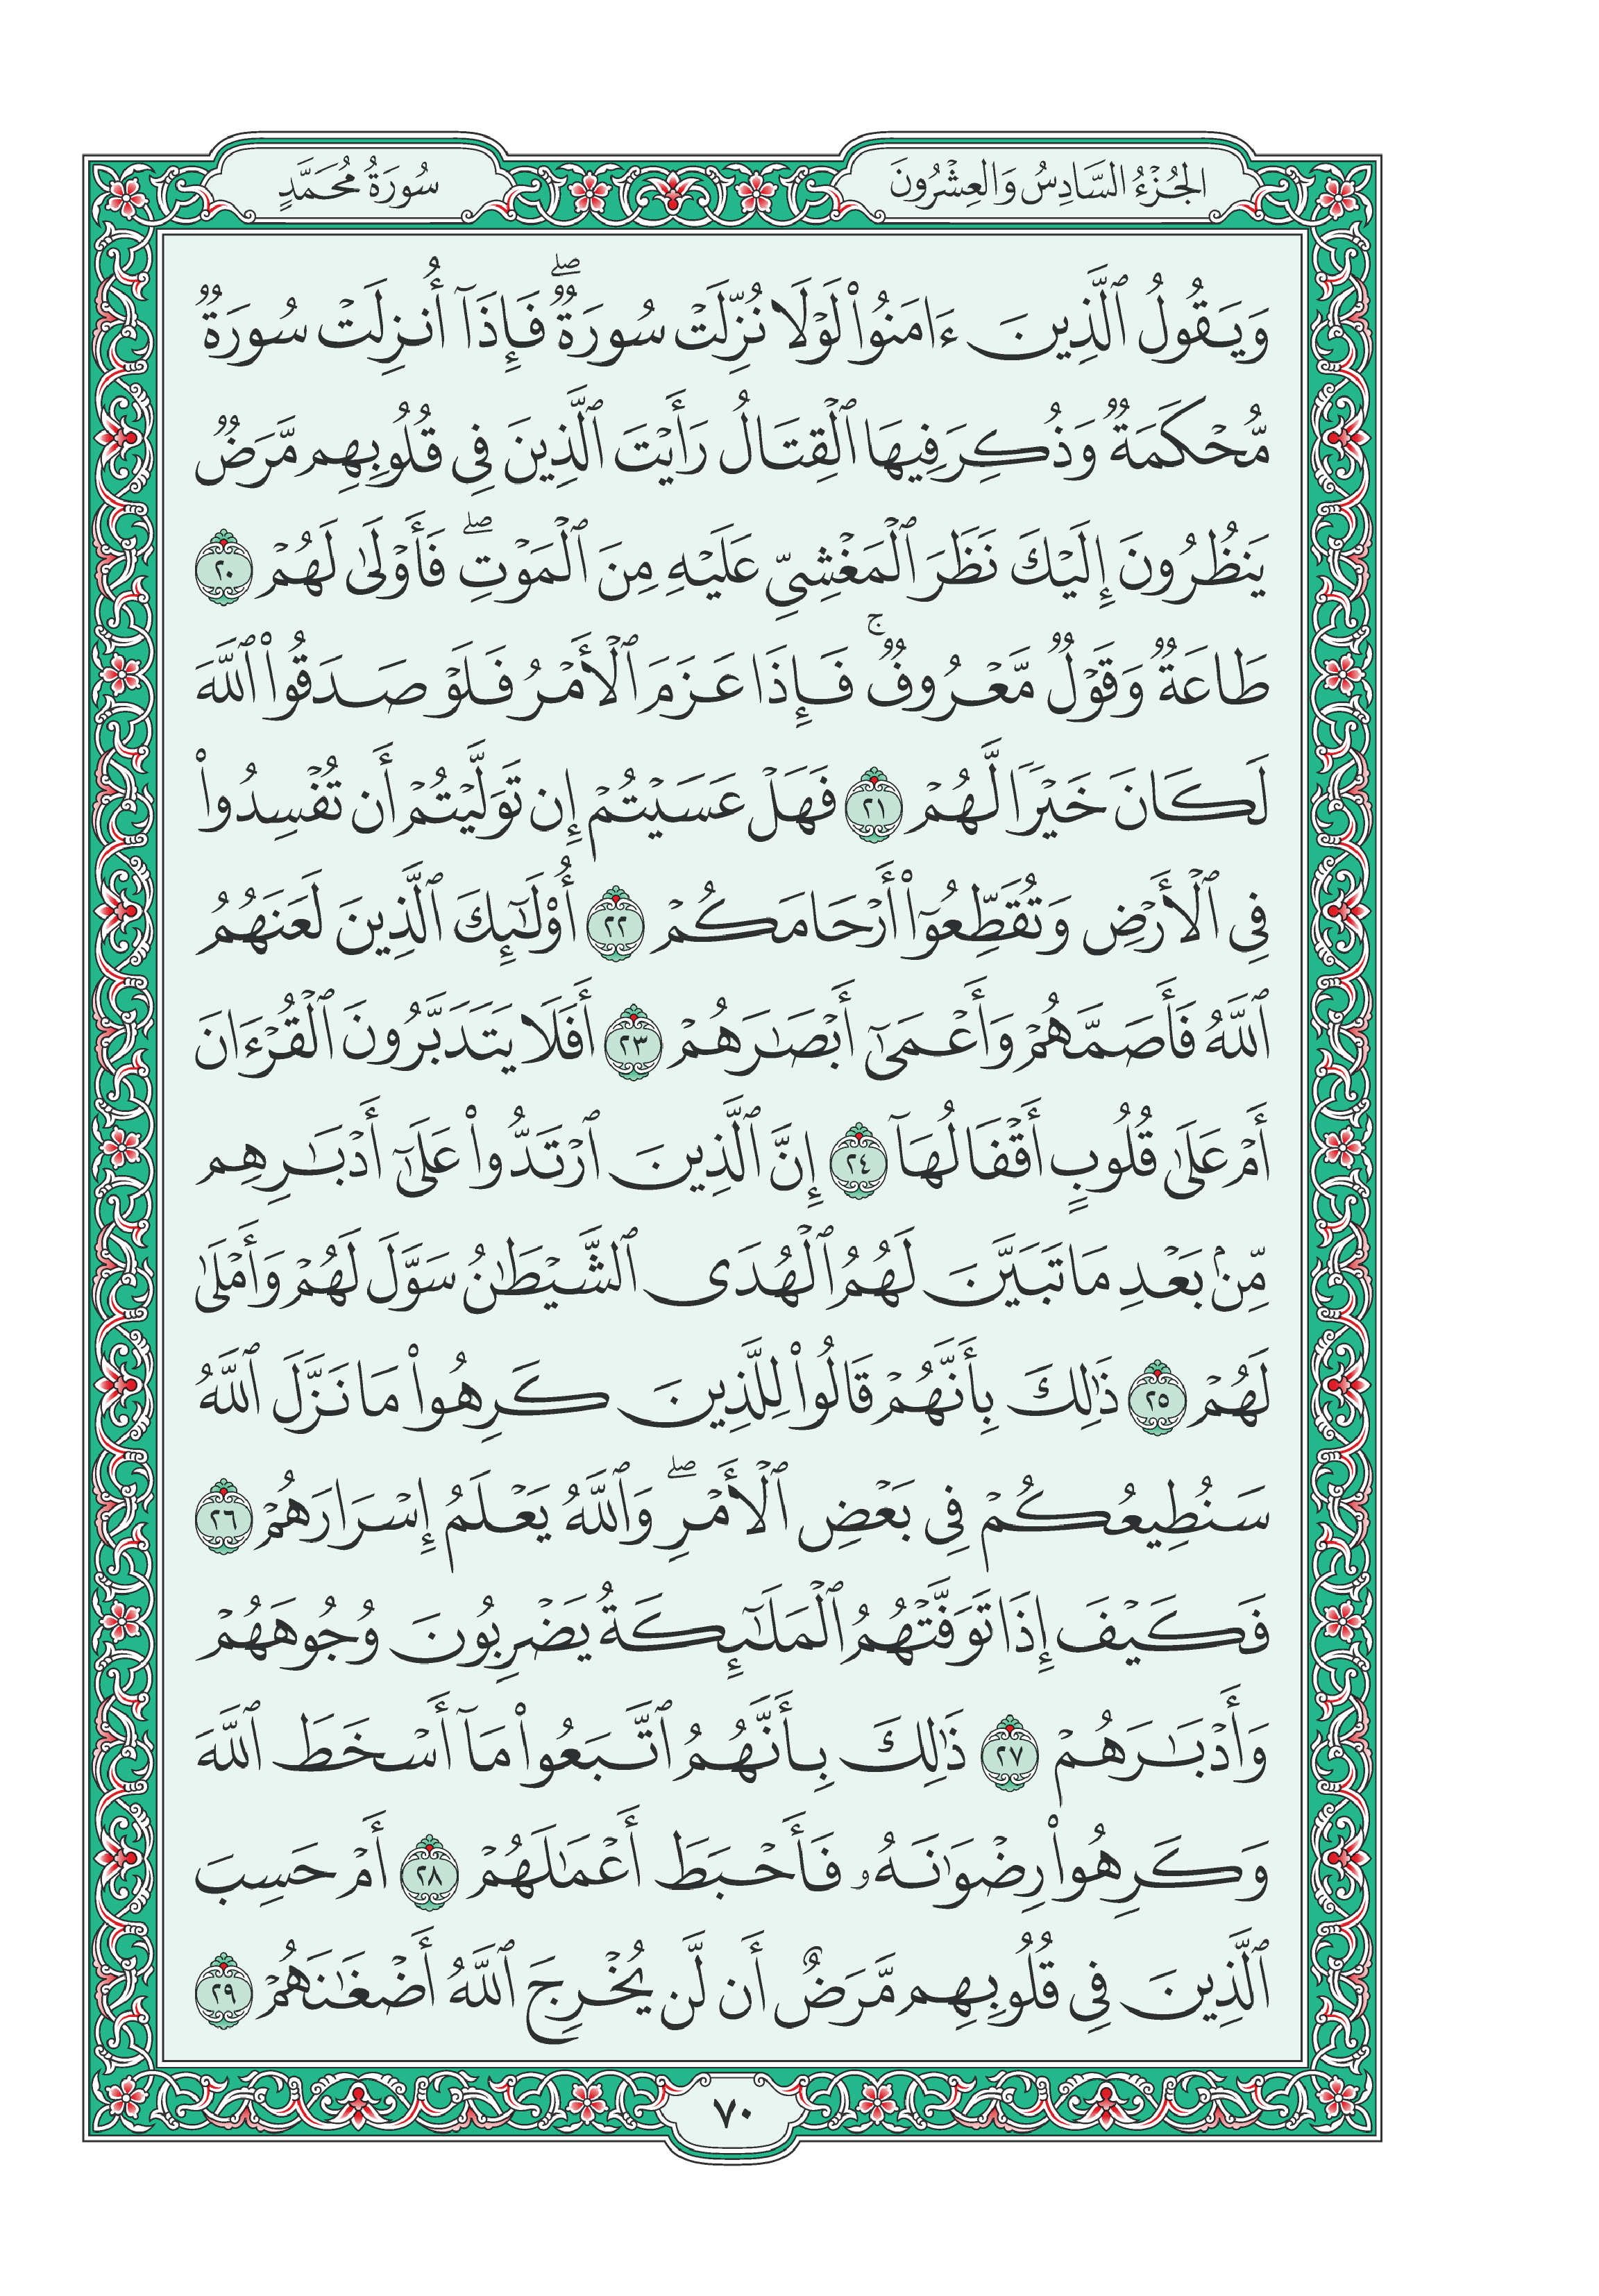 الجُزْءُ السَّادِسُ وَالعِشْرُونَ
سُورَةُ مُحَمَّدٍ
وَيَقُولُ ٱلَّذِينَ ءَامَنُوا۟ لَوْلَا نُزِّلَتْ سُورَةٌۖ فَإِذَآ أُنزِلَتْ سُورَةٌ
مُّحْكَمَةٌ وَذُكِرَ فِيهَا ٱلْقِتَالُ رَأَيْتَ ٱلَّذِينَ فِى قُلُوبِهِم مَّرَضٌ
يَنظُرُونَ إِلَيْكَ نَظَرَ ٱلْمَغْشِىِّ عَلَيْهِ مِنَ ٱلْمَوْتِۖ فَأَوْلَىٰ لَهُمْ ٢٠
طَاعَةٌ وَقَوْلٌ مَّعْرُوفٌۚ فَإِذَا عَزَمَ ٱلْأَمْرُ فَلَوْ صَدَقُوا۟ ٱللَّهَ
لَكَانَ خَيْرًا لَّهُمْ ٢١ فَهَلْ عَسَيْتُمْ إِن تَوَلَّيْتُمْ أَن تُفْسِدُوا۟
فِى ٱلْأَرْضِ وَتُقَطِّعُوٓا۟ أَرْحَامَكُمْ ٢٢ أُو۟لَـٰٓئِكَ ٱلَّذِينَ لَعَنَهُمُ
ٱللَّهُ فَأَصَمَّهُمْ وَأَعْمَىٰٓ أَبْصَـٰرَهُمْ ٢٣ أَفَلَا يَتَدَبَّرُونَ ٱلْقُرْءَانَ
أَمْ عَلَىٰ قُلُوبٍ أَقْفَالُهَآ ٢٤ إِنَّ ٱلَّذِينَ ٱرْتَدُّوا۟ عَلَىٰٓ أَدْبَـٰرِهِم
مِّنۢ بَعْدِ مَا تَبَيَّنَ لَهُمُ ٱلْهُدَى ٱلشَّيْطَـٰنُ سَوَّلَ لَهُمْ وَأَمْلَىٰ
لَهُمْ ٢٥ ذَٰلِكَ بِأَنَّهُمْ قَالُوا۟ لِلَّذِينَ كَرِهُوا۟ مَا نَزَّلَ ٱللَّهُ
سَنُطِيعُكُمْ فِى بَعْضِ ٱلْأَمْرِۖ وَٱللَّهُ يَعْلَمُ إِسْرَارَهُمْ ٢٦
فَكَيْفَ إِذَا تَوَفَّتْهُمُ ٱلْمَلَـٰٓئِكَةُ يَضْرِبُونَ وُجُوهَهُمْ
وَأَدْبَـٰرَهُمْ ٢٧ ذَٰلِكَ بِأَنَّهُمُ ٱتَّبَعُوا۟ مَآ أَسْخَطَ ٱللَّهَ
وَكَرِهُوا۟ رِضْوَٰنَهُۥ فَأَحْبَطَ أَعْمَـٰلَهُمْ ٢٨ أَمْ حَسِبَ
ٱلَّذِينَ فِى قُلُوبِهِم مَّرَضٌ أَن لَّن يُخْرِجَ ٱللَّهُ أَضْغَـٰنَهُمْ ٢٩
٧٠